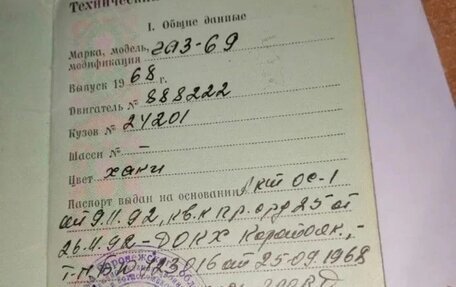 Технический
I. Общие данные
Марка, модель, газ-69
модификация
Выпуск 1968 г.
Двигатель № 888222
Кузов № 24201
Шасси № —
Цвет хаки
Паспорт выдан на основании Акт ОС-1
от 9.11.92, кв. к пр. орд 25 от
26.11.92 - ДОКХ Коротояк, -
Т.П. 123016 от 25.09.1968